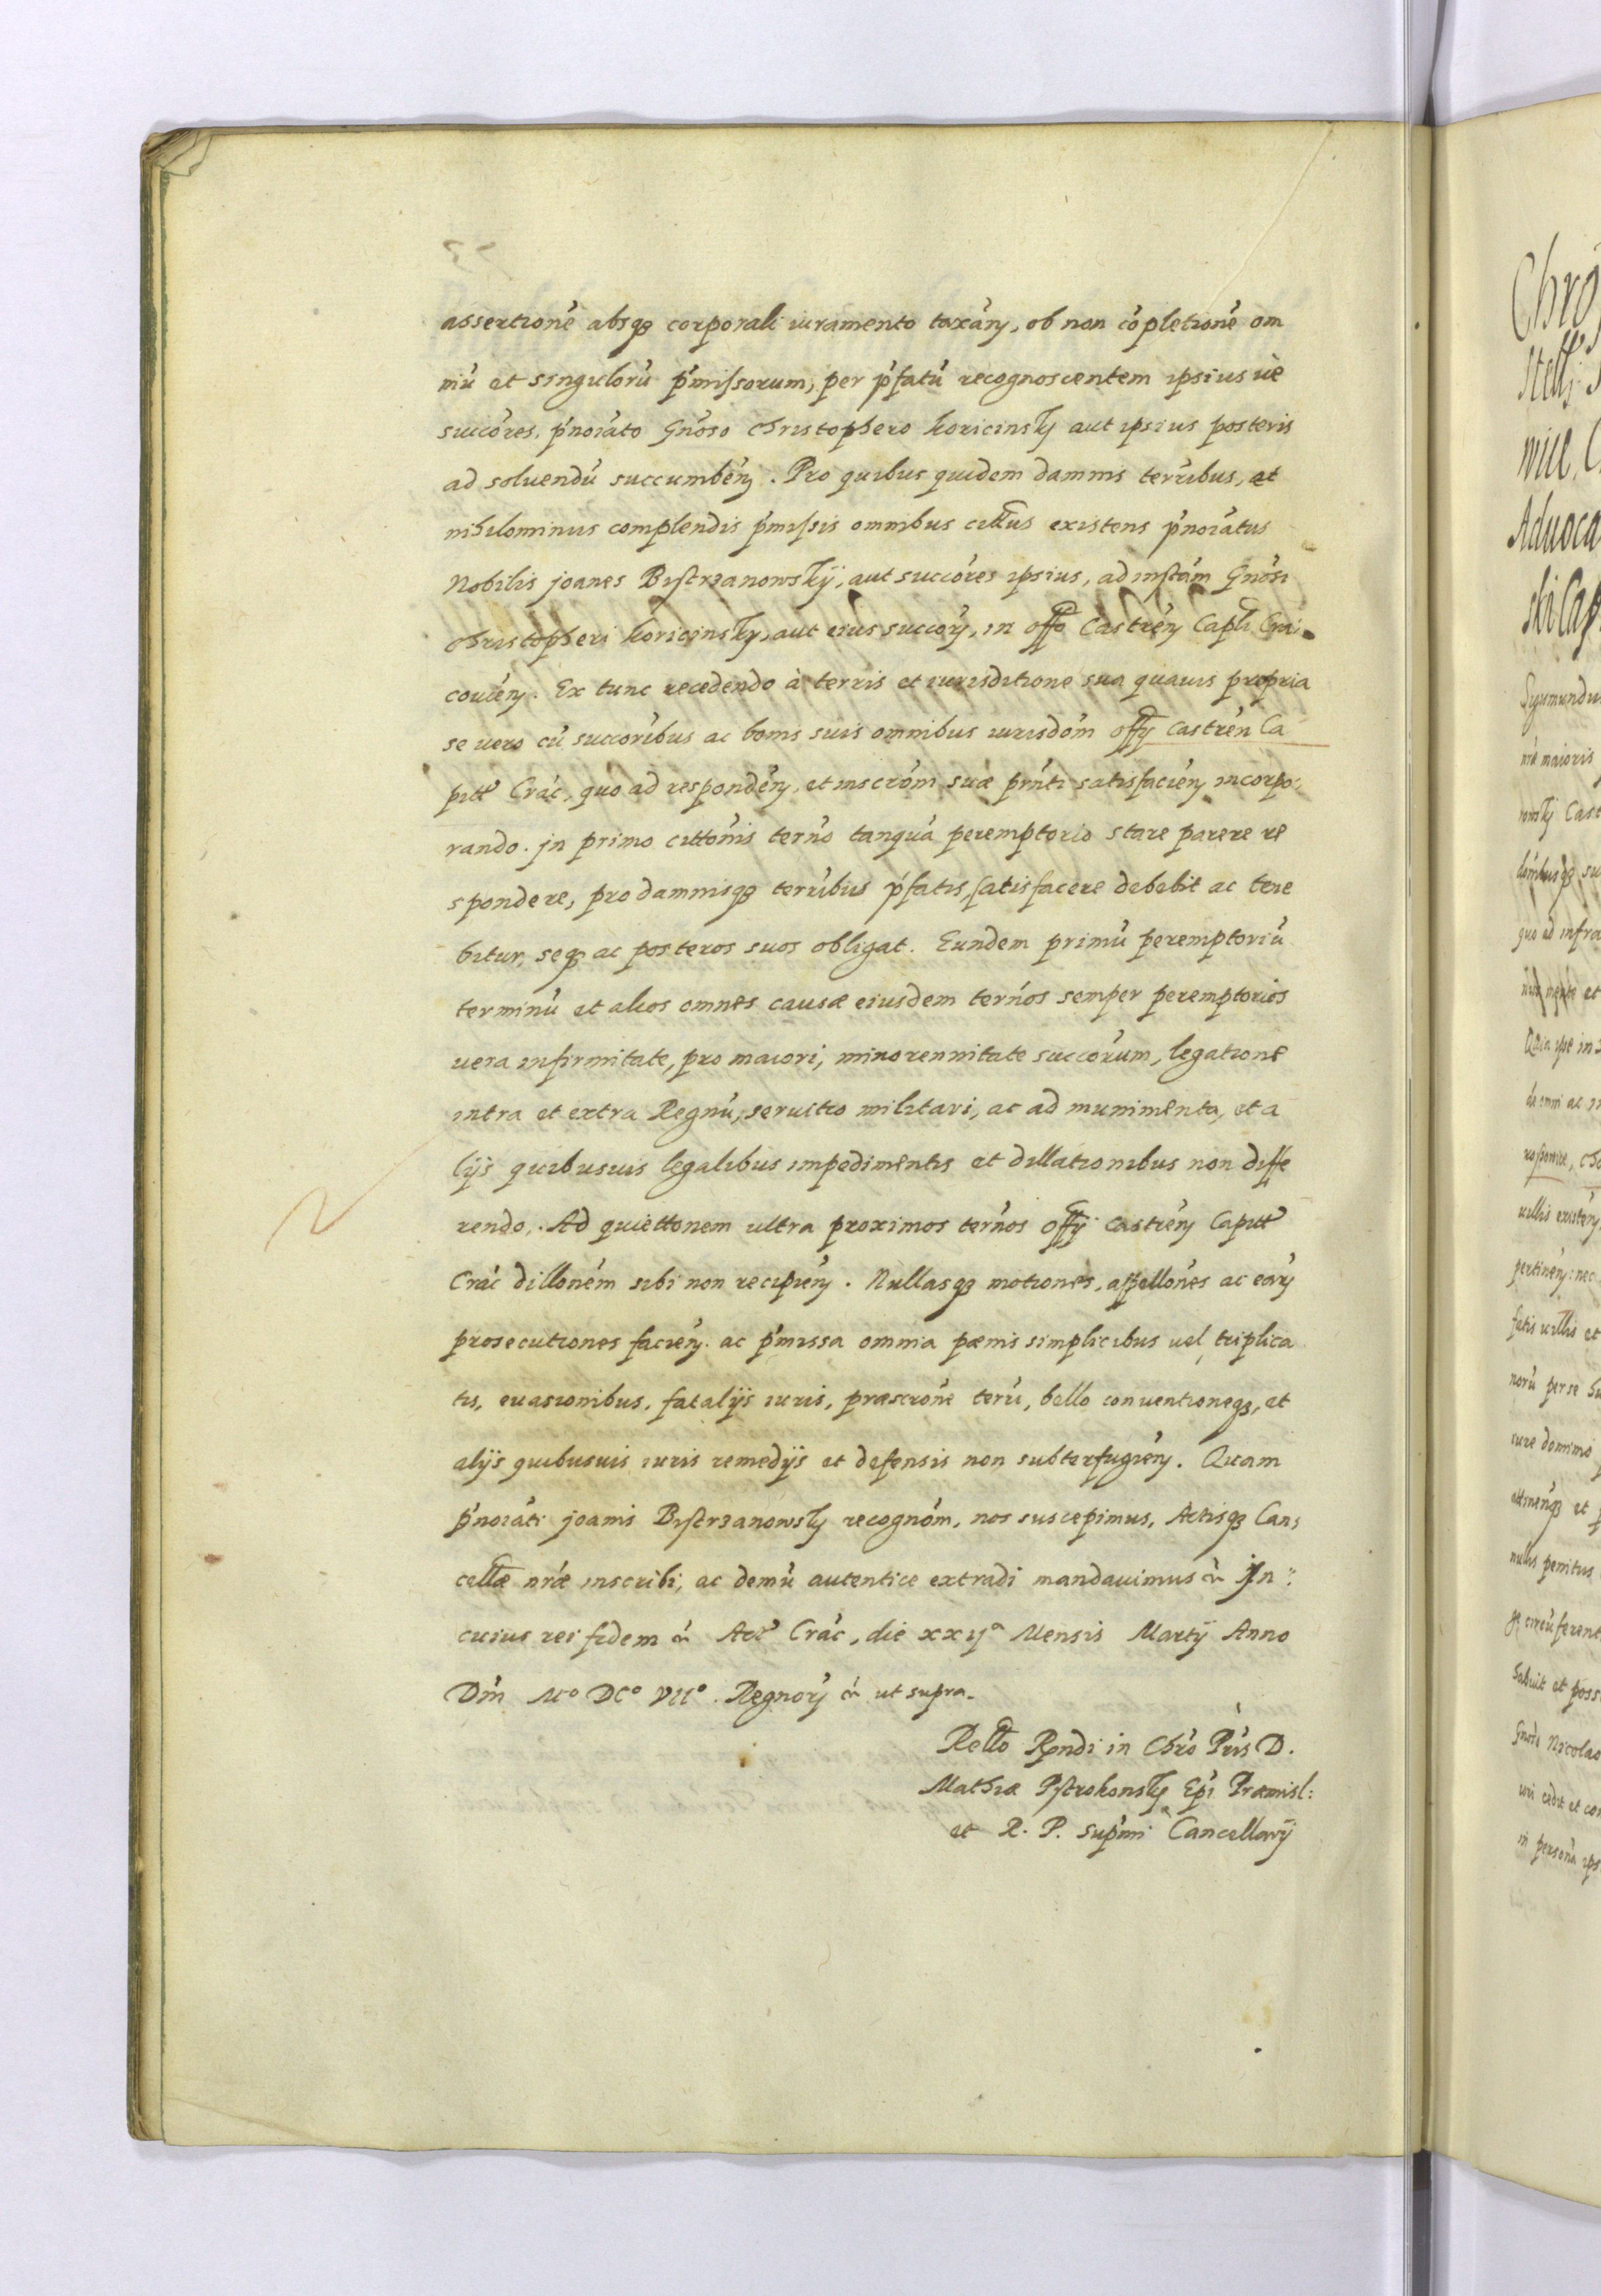 assertionẽ absqꝫ corporali iuramento taxãꝝ, ob non cõpletionẽ om
niũ et singulorũ p̃missorum, per p̃fatũ recognoscentem ipsius uè
succõres, p̃noĩato Gñoso Christophero Koricinsky aut ipsius posteris
ad soluendũ succumbẽꝝ. Pro quibus quidem damnis terr̃ibus, et
nihilominus complendis p̃missis omnibus citt̃us existens p̃noĩatus
Nobilis joanes Bistrzanowskÿ, aut succõres ipsius, ad instãm Gñosi
Christopheri Koricinsky, aut eius succorꝝ, in offo Castrẽꝝ Capli Cra
couiẽꝝ. Ex tunc recedendo à terris et iurisditione sua quauis propria
se uero cũ succorĩbus ac bonis suis omnibus iurisdõm offÿ Castrẽn Ca
pitt Crac̃, quo ad respondẽꝝ, et inscrõni suæ prñti satisfaciẽꝝ incorpo:
rando. jn primo cittõnis terñ̃o tanquã peremptorio stare parere re
spondere, pro damnisqꝫ terr̃ibus p̃fatis satisfacere debebit ac tene
bitur, seqꝫ ac posteros suos obligat. Eundem primũ peremptoriũ
terminũ et alios omnes causæ eiusdem terñ̃os semper peremptorios
uera infirmitate, pro maiori, minorennitate succõrum, legatione
intra et extra Regnũ, seruitio militari, ac ad munimenta, et a
lÿs quibusuis legalibus impedimentis et dillationibus non diffe
rendo. Ad quiettonem ultra proximos terñ̃os offÿ castrẽꝝ Capitt
Crac̃ dillonẽm sibi non recipiẽꝝ. Nullasqꝫ motiones, appellões ac eaꝝ
prosecutiones faciẽꝝ. ac p̃missa omnia pœnis simplicibus uel triplica
tis, euasionibus, fatalÿs iuris, præscriõne terũ, bello conuentioneqꝫ, et
alÿs quibusuis iuris remedÿs et defensis non subterfugiẽꝝ. Quam
p̃noĩati joanis Bistrzanowsky recognõm, nos suscepimus, Actisqꝫ Can:
cellæ nr̃æ inscribi, ac demũ autentice extradi mandauimus &c̃ Jn:
cuius rei fidem &c̃ Act Crac̃, die xxijª Mensis Martÿ Anno
Dñi Mº DCº VIIº. Regnorꝝ &c̃ ut supra.
Rello Rendi in Chrõ Prĩs D.
Mathiæ Pstrokonsky Epĩ Præmisl:
et R. P. Sup̃mi Cancellarÿ